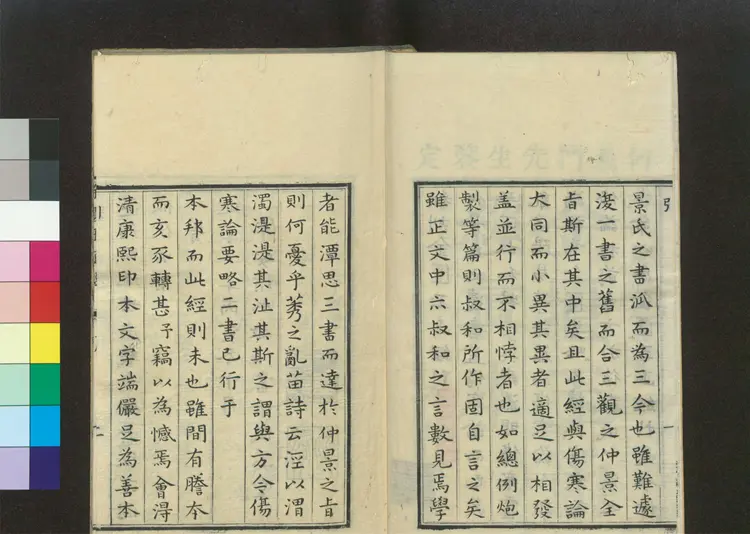 引
景氏之書派而為三今也雖難遽
復一書之舊而合三觀之仲景全
旨斯在其中矣且此經與傷寒論
大同而小異其異者適足以相發
盖並行而不相悖者也如總例炮
製等篇則叔和所作固自言之矣
雖正文中六叔和之言數見焉學
一
者能潭思三書而達於仲景之旨
則何憂乎莠之亂苗詩云涇以渭
濁湜湜其沚其斯之謂與方今傷
寒論要略二書已行于
本邦而此經則未也雖間有謄本
而亥豕轉甚予竊以為憾焉會得
清康熙印本文字端儼足為善本